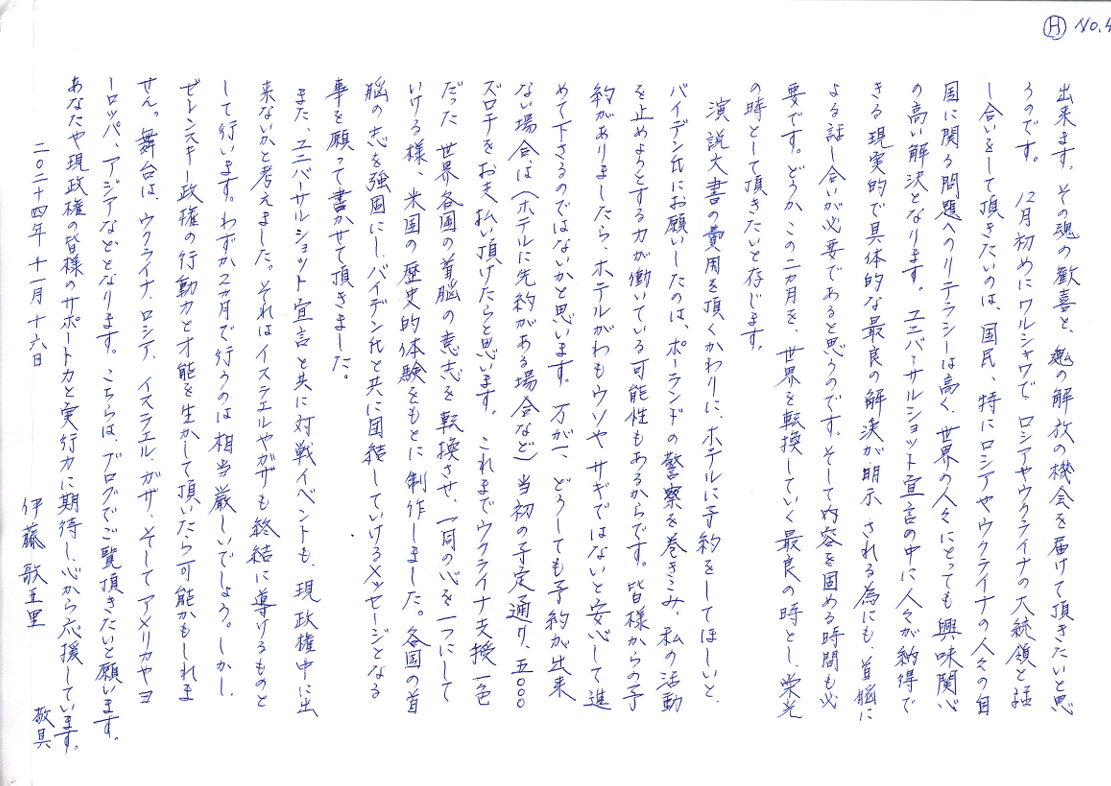 Ⓗ No.
出来ます。その魂の歓喜と、魂の解放の機会を届けて頂きたいと思
うのです。 12月初めにワルシャワで、ロシアやウクライナの大統領と話
し合いをして頂きたいのは、国民、特にロシアやウクライナの人々の自
国に関る問題へのリテラシーは高く、世界の人々にとっても興味関心
の高い解決となります。ユニバーサルショット宣言の中に人々が納得で
きる現実的で具体的な最良の解決が明示される為にも、首脳に
よる話し合いが必要であると思うのです。そして内容を固める時間も必
要です。どうか、この二カ月を、世界を転換していく最良の時とし、栄光
の時として頂きたいと存じます。
演説文書の費用を頂くかわりに、ホテルに予約をしてほしいと、
バイデン氏にお願いしたのは、ポーランドの警察を巻きこみ、私の活動
を止めようとする力が働いている可能性もあるからです。皆様からの予
約がありましたら、ホテルがわもウソやサギではないと安心して進
めて下さるのではないかと思います。万が一、どうしても予約が出来
ない場合は(ホテルに先約がある場合など)当初の予定通り、五〇〇〇
ズロチをお支払い頂けたらと思います。 これまでウクライナ支援一色
だった 世界各国の首脳の意志を転換させ、一同の心を一つにして
いける様、米国の歴史的体験をもとに制作しました。各国の首
脳の志を強固にし、バイデン氏と共に団結していけるメッセージとなる
事を願って書かせて頂きました。
また、ユニバーサルショット宣言と共に対戦イベントも、現政権中に出
来ないかと考えました。それはイスラエルやガザも終結に導けるものと
して行います。わずか2カ月で行うのは相当厳しいでしょう。しかし、
ゼレンスキー政権の行動力と才能を生かして頂いたら可能かもしれま
せん。舞台は、ウクライナ、ロシア、イスラエル、ガザ、そしてアメリカやヨ
ーロッパ、アジアなどとなります。こちらは、ブログでご覧頂きたいと願います。
あなたや現政権の皆様のサポート力と実行力に期待し、心から応援しています。
敬具
二〇二十四年 十一月 十六日
伊藤 歌里